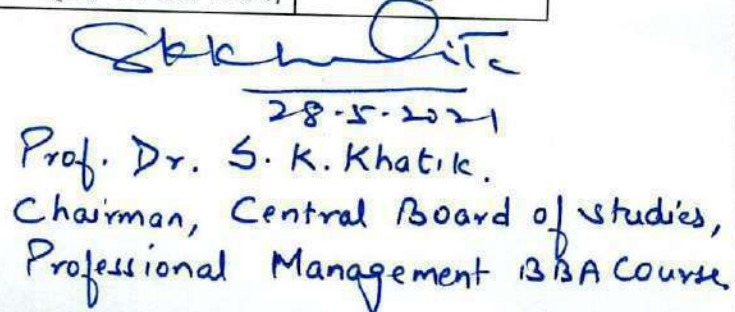 28.5.2021
Prof. Dr. S. K. Khatik.
Chairman, Central Board of studies,
Professional Management BBA Course